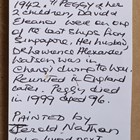 1942. "Peggy & her
2 children, David &
Eleanor were on one
of the last ships from
Singapore. Her husband
Dr Lawrence Alexander
Watson was in
Changi during the war
Reunited in England
later. Peggy died
in 1999 aged 96.
PAINTED by
Gerald Nathan